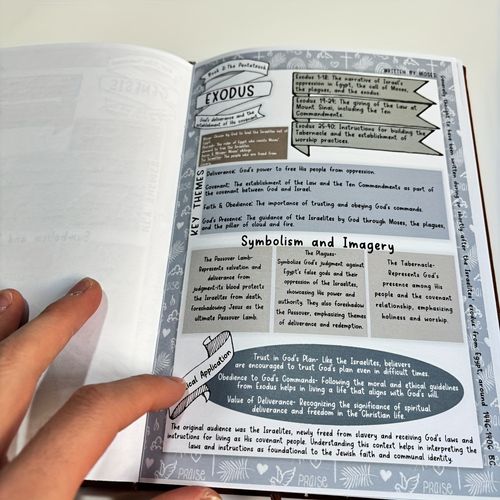 Book 2: The Pentateuch
WRITTEN BY MOSES
EXODUS
God's deliverance and the
establishment of His covenant
Exodus 1-18: The narrative of Israel's
oppression in Egypt, the call of Moses,
the plagues, and the exodus.
Exodus 19-24: The giving of the Law at
Mount Sinai, including the Ten
Commandments.
Exodus 25-40: Instructions for building the
Tabernacle and the establishment of
worship practices.
KEY THEMES
Deliverance: God's power to free His people from oppression.
Covenant: The establishment of the Law and the Ten Commandments as part of
the covenant between God and Israel.
Faith & Obedience: The importance of trusting and obeying God's commands.
God's Presence: The guidance of the Israelites by God through Moses, the plagues,
and the pillar of cloud and fire.
Symbolism and Imagery
The Passover Lamb-
Represents salvation and
deliverance from
judgment-its blood protects
the Israelites from death,
foreshadowing Jesus as the
ultimate Passover Lamb.
The Plagues-
Symbolize God's judgment against
Egypt's false gods and their
oppression of the Israelites,
showcasing His power and
authority. They also foreshadow
the Passover, emphasizing themes
of deliverance and redemption.
The Tabernacle-
Represents God's
presence among His
people and the covenant
relationship, emphasizing
holiness and worship.
Application
Trust in God's Plan- Like the Israelites, believers
are encouraged to trust God's plan even in difficult times.
Obedience to God's Commands- Following the moral and ethical guidelines
from Exodus helps in living a life that aligns with God's will.
Value of Deliverance- Recognizing the significance of spiritual
deliverance and freedom in the Christian life.
The original audience was the Israelites, newly freed from slavery and receiving God's laws and
instructions for living as His covenant people. Understanding this context helps in interpreting the
laws and instructions as foundational to the Jewish faith and communal identity.
PRAISE
PRAISE